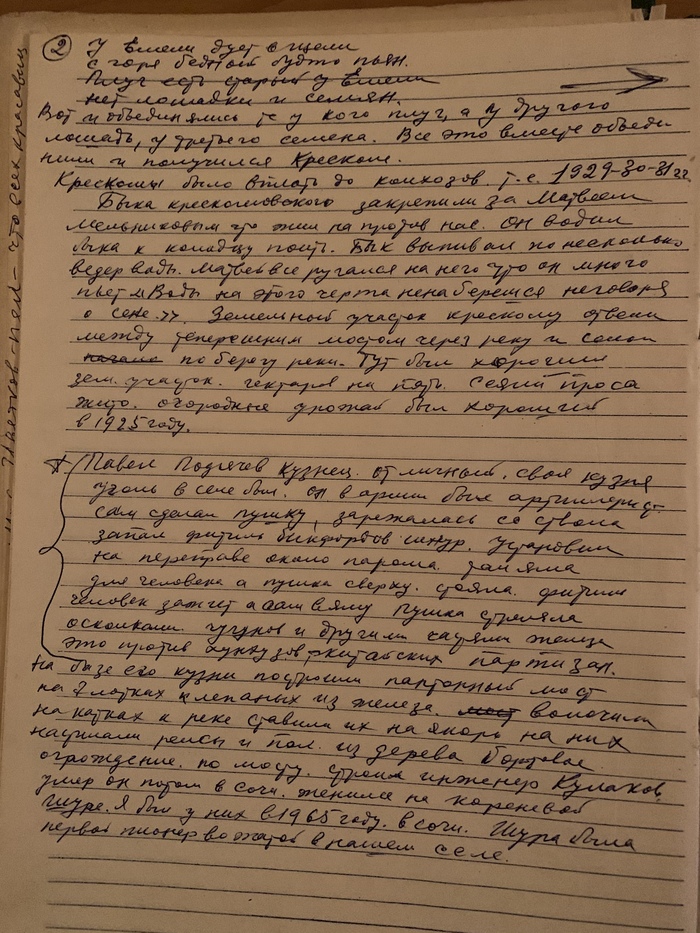 ②
У Емели дует в щели
с горя бедный буджо пьян.
Плуг есть старый у Емели
нет лошадки и семян.
Вот и объединялись те у кого плуг, а у другого
лошадь, у третьего семена. Все это вместе объеди
нили и получился Креском.
Крескомы были вплоть до колхозов. т.е. 1929-30-31
Быка крескомовского закрепили за Матвеем
Мельниковым что жил на против нас. Он водил
быка к колодцу поить. Бык выпивал по несколько
ведер воды. Матвей все ругался на него что он много
пьет и воды на этого черта ненаберешся неговоря
о сене.>> Земельный участок крескому отвели
между теперешним мостом через реку и
начало по берегу реки. Тут был хороший
зем. участок. гектаров на пять. Сеяли проса
жито. огородные урожай был хороший
в 1925 году.
Павел Подячев кузнец. отличный. своя кузня
уголь в селе был. он в армии был артиллерист
сам сделал пушку, заряжалась со ствола
запал фитиль бикфордов шнур. Установили
на переправе около парома. там яма
для человека а пушка сверху. стояла. фитиль
человек зажгет а сам в яму пушка стреляла
осколками. чугунов и другими частями железа
это против хунхузов, китайских партизан.
На базе его кузни построили понтонный мост
на 2 лотках клепаных из железа. мост волочили
на катках к реке ставили их на якорь на них
настилали рельсы и пол. из дерева бортовое
огрождение. по мосту. строил инженер Кулаков.
умер он потом в сочи. женился на кореневой
Шуре. Я был у них в 1965 году. в сочи. Шура была
первой пионер вожатой в нашем селе.
что всех красавиц